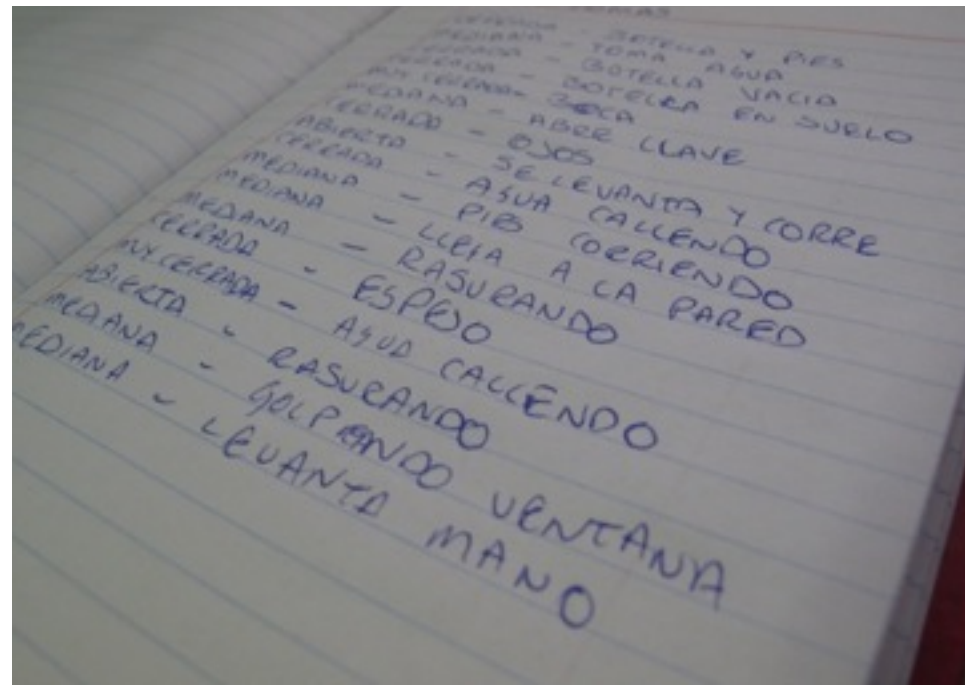 TOMAS
CERRADA - BOTELLA Y PIES
MEDIANA - TOMA AGUA
CERRADA - BOTELLA VACIA
CERRADA - BOTELLA EN SUELO
MUY CERRADA - BOCA
MEDIANA - ABRE LLAVE
CERRADO - OJOS
ABIERTA - SE LEVANTA Y CORRE
CERRADA - AGUA CALLENDO
MEDIANA - PIES CORRIENDO
MEDIANA - LLEGA A LA PARED
MEDIANA - RASURANDO
CERRADA - ESPEJO
MUY CERRADA - AGUA CALLENDO
ABIERTA - RASURANDO
MEDIANA - GOLPEANDO VENTANA
MEDIANA - LEVANTA MANO